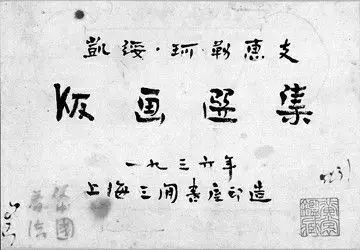 凯綏·珂勒惠支
版画選集
一九三六年
上海三閒書屋印造